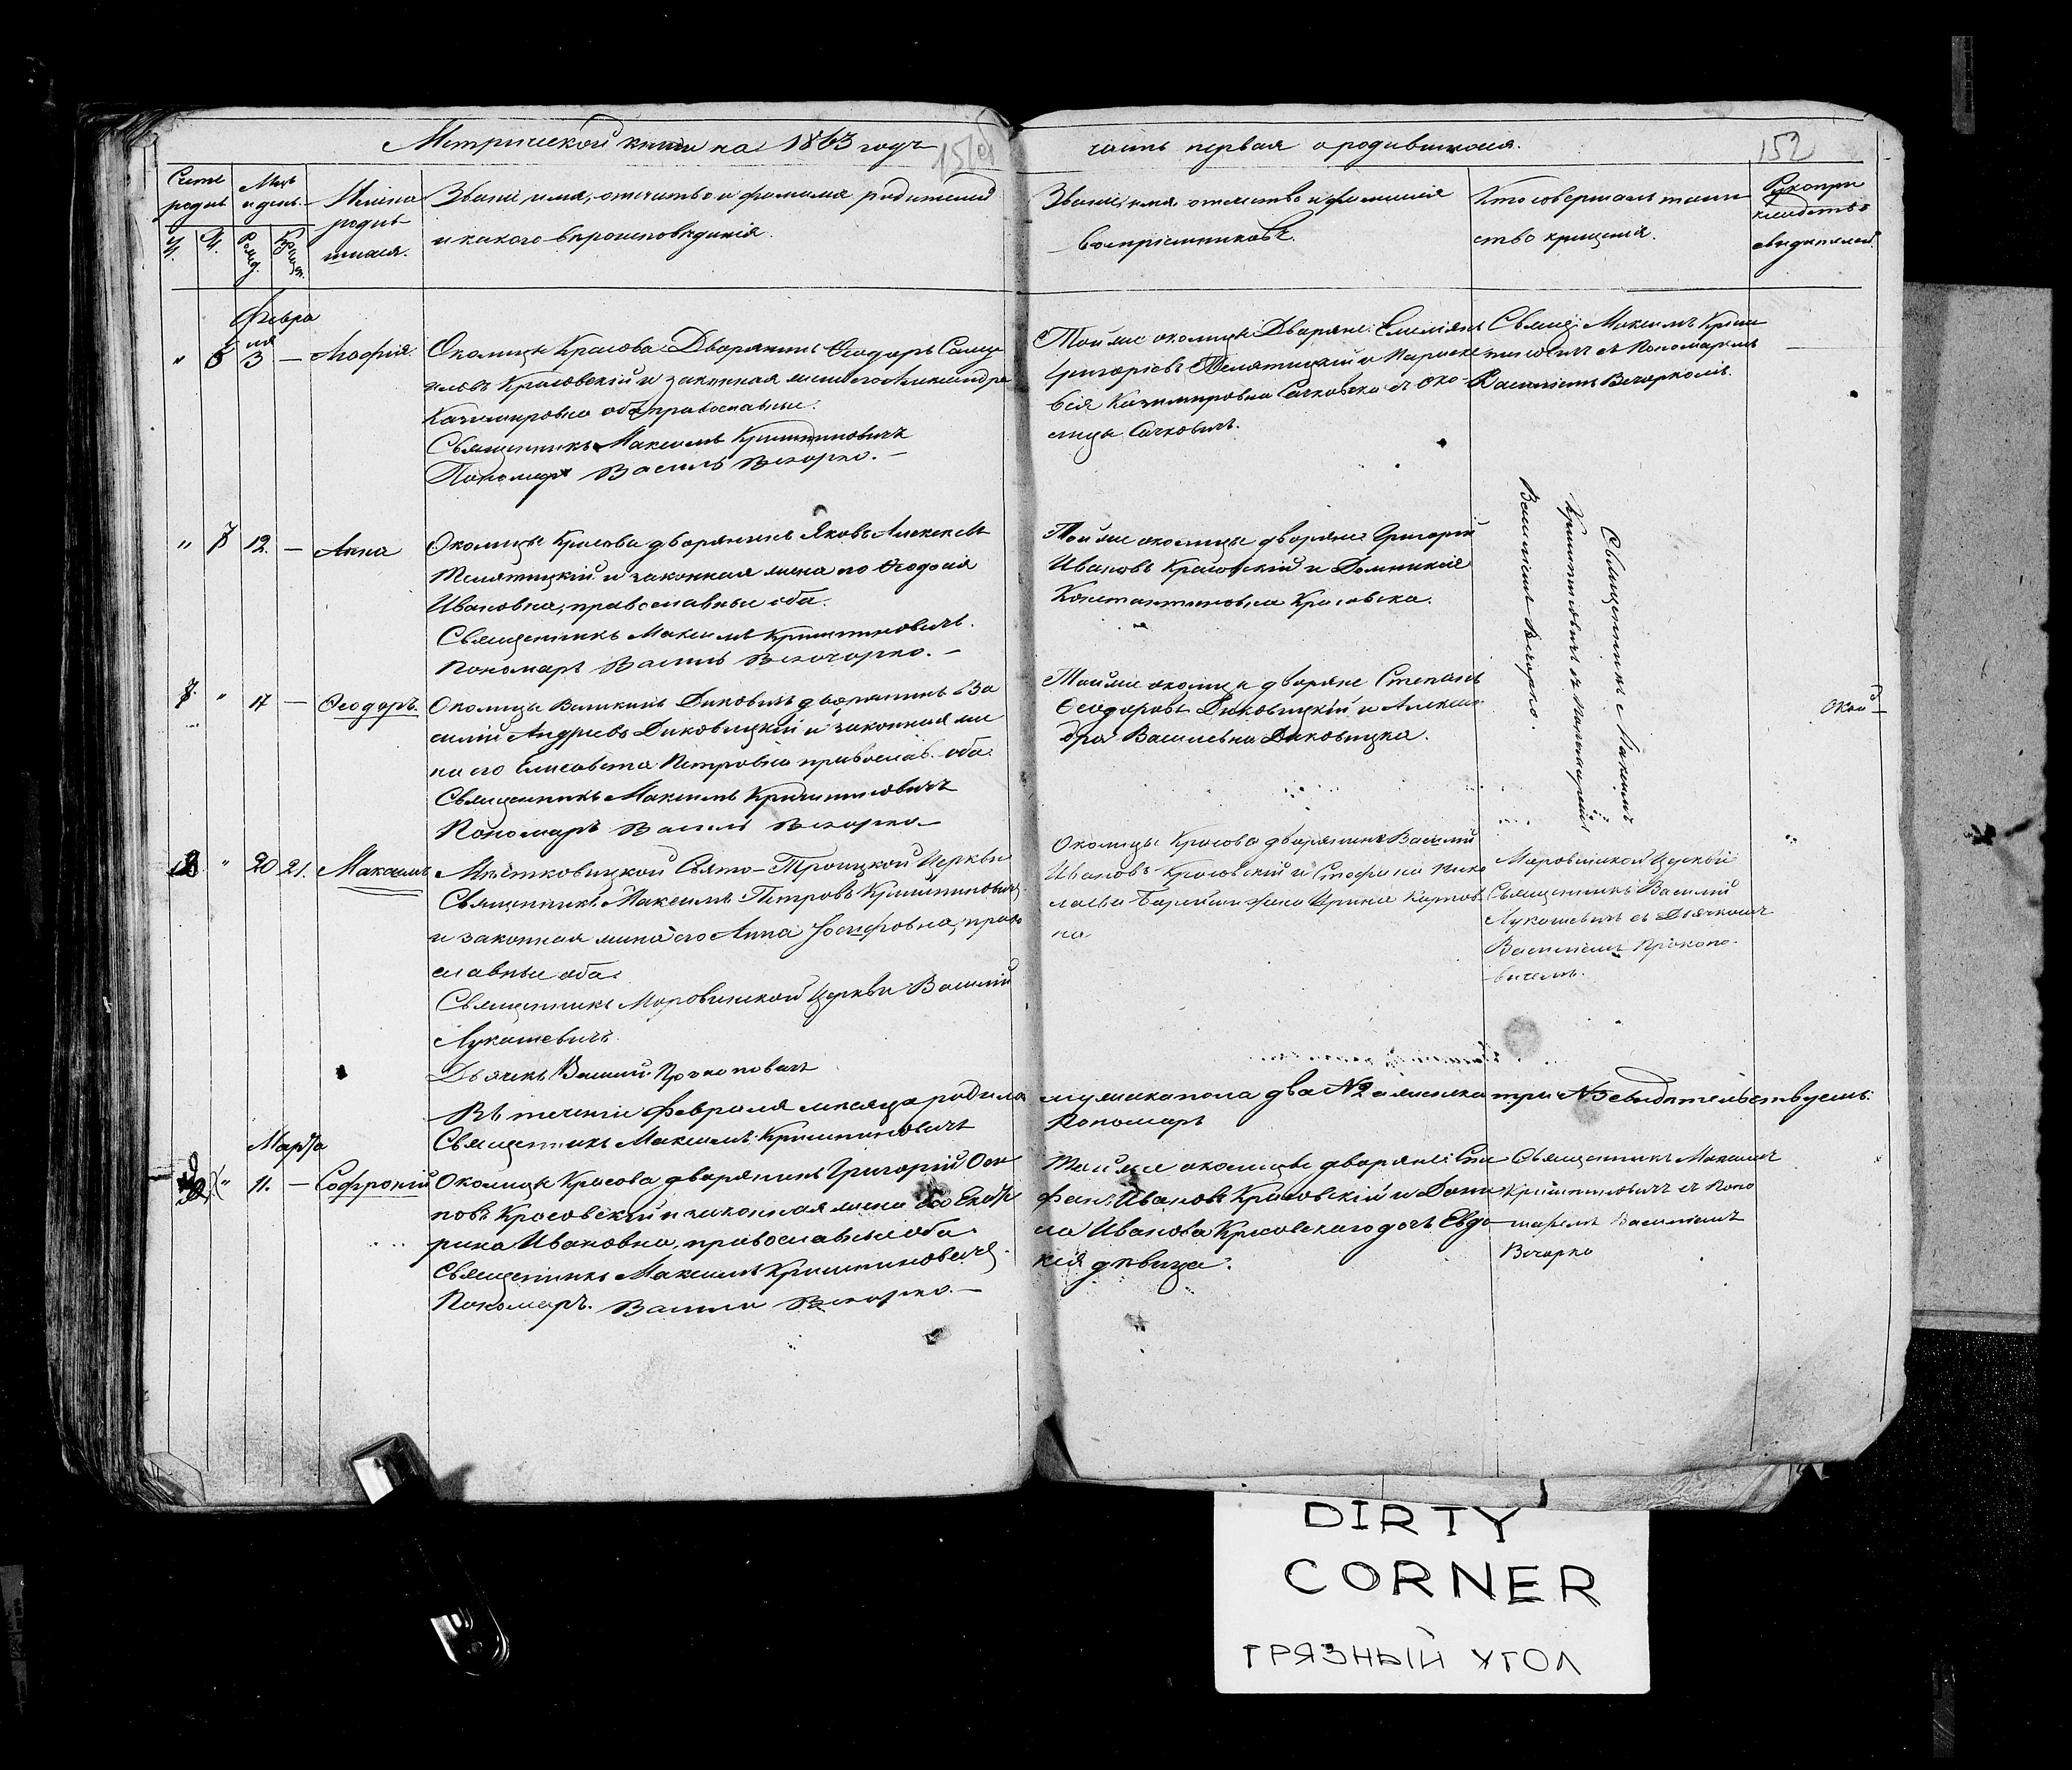 Метрической книги на 1863 годъ
часть первая о родившихся.
152
Счетъ родив
Мцъ и день
Имена родив шихся.
Званіе, имя, отчество и фамилія родителей
и какого вѣроисповѣданія.
Званіе, имя, отчество и фамилія
воспріемниковъ.
Кто совершалъ таин
ство крещенія.
Рукопри
кладство
свидетелей
М. Ж. Рожд. Крещ.
Февра
ля
" 6 3 —
Околицы Красова Дворянинъ Ѳеодоръ
Красовскій и законная жена его Александра
Казимировна оба православные.
Священникъ Максимъ Криштиновичъ
Пономарь Василь Вечорко. —
Той же околицы Дворяне: Емеліянъ
Григорьевъ Телятицкій и Параске
вія Казимировна Сачковска съ око
лицы Сачковичъ.
Свящ: Максимъ Криш
тиновичъ съ Пономаремъ
Василіемъ Вечоркомъ.
" 7 12. — Анна
Околицы Красова дворянинъ Яковъ Алексѣевъ
Телятицкій и законная жена его Ѳеодосія
Ивановна, православные оба.
Священникъ Максимъ Криштиновичъ.
Пономарь Василь Вечорко. —
Той же околицы дворяне Григорій
Ивановъ Красовскій и Доминикія
Константиновна Красовска.
Священникъ Максимъ
Криштиновичъ съ Пономаремъ
Василіемъ Вечорко.
7 " 17 — Ѳеодоръ.
Околицы Великихъ Диковичъ дворянинъ Ва
силій Андреевъ Диковицкій и законная же
на его Елисавета Петровна православ. оба.
Священникъ Максимъ Криштиновичъ
Пономарь Василь Вечорко —
Той же околицы дворяне Степанъ
Ѳеодоровъ Диковицкій и Алексан
дра Васильевна Диковицка.
8 " 20 21. Максимъ
Свято-Троицкой Церкви
Священникъ Максимъ Петровъ Криштиновичъ
и законная жена его Анна Іосифовна, право
славные оба.
Священникъ Моровинской Церкви Василій
Лукашевичъ
Дьячекъ Василій Прокоповичъ
Околицы Красова дворянинъ Василій
Ивановъ Красовскій и Стефана Нико
лаева жена Ирина Карпов
на
Моровинской Церкви
Священникъ Василій
Лукашевичъ съ Дьячкомъ
Василіемъ Прокопо
вичемъ.
Въ теченіи Февраля месяца родилось мужеска пола два №2 а женска три №3 свидѣтельствуемъ:
Священникъ Максимъ Криштиновичъ
Пономарь
Марта
" 11. — Софроній
Околицы Красова дворянинъ Григорій Оси
повъ Красовскій и законная жена его Екате
рина Ивановна, православные оба.
Священникъ Максимъ Криштиновичъ.
Пономарь. Василь Вечорко. —
Той же околицы дворяне: Сте
фанъ Ивановъ Красовскій и Дани
ла Иванова Красовскаго дочь Евдо
кія дѣвица.
Священникъ Максимъ
Криштиновичъ съ Поно
маремъ Василіемъ
Вечорко
DIRTY
CORNER
ГРЯЗНЫЙ УГОЛ